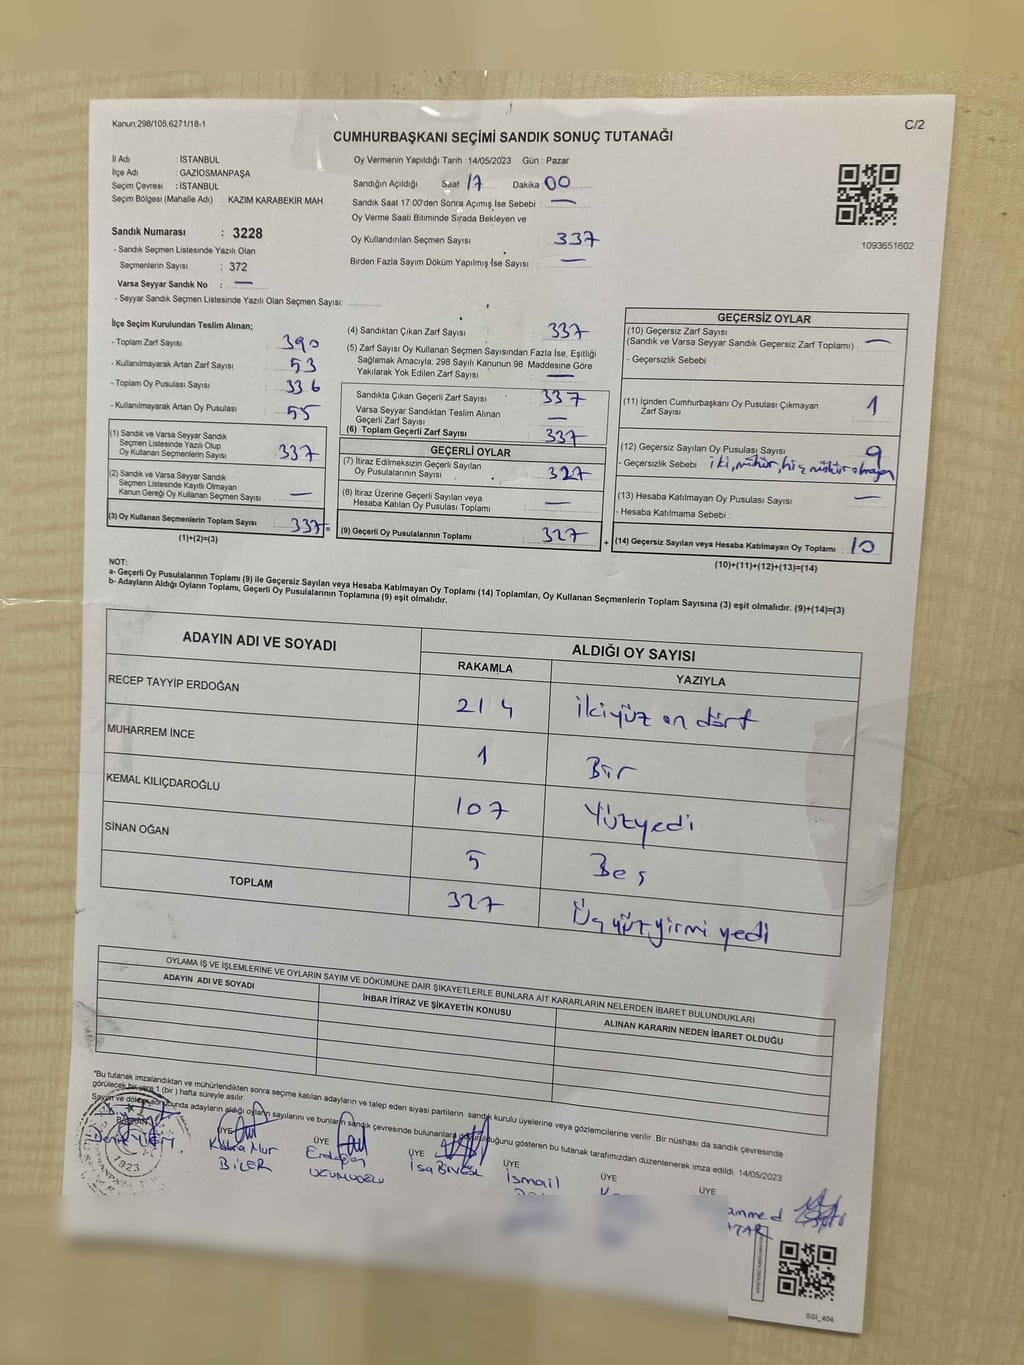 Kanun:298/105,6271/18-1
C/2
CUMHURBAŞKANI SEÇİMİ SANDIK SONUÇ TUTANAĞI
İl Adı : İSTANBUL
İlçe Adı : GAZİOSMANPAŞA
Seçim Çevresi : İSTANBUL
Seçim Bölgesi (Mahalle Adı) : KAZIM KARABEKİR MAH
Sandık Numarası : 3228
- Sandık Seçmen Listesinde Yazılı Olan
Seçmenlerin Sayısı : 372
Varsa Seyyar Sandık No : —
- Seyyar Sandık Seçmen Listesinde Yazılı Olan Seçmen Sayısı:
Oy Vermenin Yapıldığı Tarih : 14/05/2023 Gün : Pazar
Sandığın Açıldığı Saat 17 Dakika : 00
Sandık Saat 17:00'den Sonra Açımış İse Sebebi : —
Oy Verme Saati Bitiminde Sırada Bekleyen ve
Oy Kullandırılan Seçmen Sayısı : 337
Birden Fazla Sayım Döküm Yapılmış İse Sayısı : —
1093651602
İlçe Seçim Kurulundan Teslim Alınan;
- Toplam Zarf Sayısı : 390
- Kullanılmayarak Artan Zarf Sayısı : 53
- Toplam Oy Pusulası Sayısı : 336
- Kullanılmayarak Artan Oy Pusulası : 55
(1) Sandık ve Varsa Seyyar Sandık
Seçmen Listesinde Yazılı Olup
Oy Kullanan Seçmenlerin Sayısı : 337
(2) Sandık ve Varsa Seyyar Sandık
Seçmen Listesinde Kayıtlı Olmayan
Kanun Gereği Oy Kullanan Seçmen Sayısı : —
(3) Oy Kullanan Seçmenlerin Toplam Sayısı : 337
(1)+(2)=(3)
(4) Sandıktan Çıkan Zarf Sayısı : 337
(5) Zarf Sayısı Oy Kullanan Seçmen Sayısından Fazla İse, Eşitliği
Sağlamak Amacıyla; 298 Sayılı Kanunun 98 Maddesine Göre
Yakılarak Yok Edilen Zarf Sayısı : —
Sandıkta Çıkan Geçerli Zarf Sayısı : 337
Varsa Seyyar Sandıktan Teslim Alınan
Geçerli Zarf Sayısı : —
(6) Toplam Geçerli Zarf Sayısı : 337
GEÇERLİ OYLAR
(7) İtiraz Edilmeksizin Geçerli Sayılan
Oy Pusulasının Sayısı : 327
(8) İtiraz Üzerine Geçerli Sayılan veya
Hesaba Katılan Oy Pusulası Toplamı : —
(9) Geçerli Oy Pusulalarının Toplamı : 327
GEÇERSİZ OYLAR
(10) Geçersiz Zarf Sayısı
(Sandık ve Varsa Seyyar Sandık Geçersiz Zarf Toplamı) : —
- Geçersizlik Sebebi :
(11) İçinden Cumhurbaşkanı Oy Pusulası Çıkmayan
Zarf Sayısı : 1
(12) Geçersiz Sayılan Oy Pusulası Sayısı : 9
- Geçersizlik Sebebi : iki, mühür, hiç mühür olmayan
(13) Hesaba Katılmayan Oy Pusulası Sayısı : —
- Hesaba Katılmama Sebebi :
(14) Geçersiz Sayılan veya Hesaba Katılmayan Oy Toplamı : 10
(10)+(11)+(12)+(13)=(14)
NOT:
a- Geçerli Oy Pusulalarının Toplamı (9) ile Geçersiz Sayılan veya Hesaba Katılmayan Oy Toplamı (14) Toplamları, Oy Kullanan Seçmenlerin Toplam Sayısına (3) eşit olmalıdır. (9)+(14)=(3)
b- Adayların Aldığı Oyların Toplamı, Geçerli Oy Pusulalarının Toplamına (9) eşit olmalıdır.
ADAYIN ADI VE SOYADI
ALDIĞI OY SAYISI
RAKAMLA YAZIYLA
RECEP TAYYİP ERDOĞAN 214 ikiyüz on dört
MUHARREM İNCE 1 Bir
KEMAL KILIÇDAROĞLU 107 Yüzyedi
SİNAN OĞAN 5 Beş
TOPLAM 327 Üçyüzyirmi yedi
OYLAMA İŞ VE İŞLEMLERİNE VE OYLARIN SAYIM VE DÖKÜMÜNE DAİR ŞİKAYETLERLE BUNLARA AİT KARARLARIN NELERDEN İBARET BULUNDUKLARI
ADAYIN ADI VE SOYADI
İHBAR İTİRAZ VE ŞİKAYETİN KONUSU
ALINAN KARARIN NEDEN İBARET OLDUĞU
*Bu tutanak imzalandıktan ve mühürlendikten sonra seçime katılan adayların ve talep eden siyasi partilerin sandık kurulu üyelerine veya gözlemcilerine verilir. Bir nüshası da sandık çevresinde
görülecek bir yere 1 (bir) hafta süreyle asılır.
Sayım ve döküm sonucunda adayların aldığı oyların sayılarını ve bunların sandık çevresinde bulunanlara duyurulduğunu gösteren bu tutanak tarafımızdan düzenlenerek imza edildi. 14/05/2023
BAŞKAN
ÜYE
Kübra Nur
BİLER
ÜYE
Erdoğan
UCUMUOĞLU
ÜYE
İsa BİNGÖL
ÜYE
İsmail
ÜYE
ÜYE
1923
SSI_404